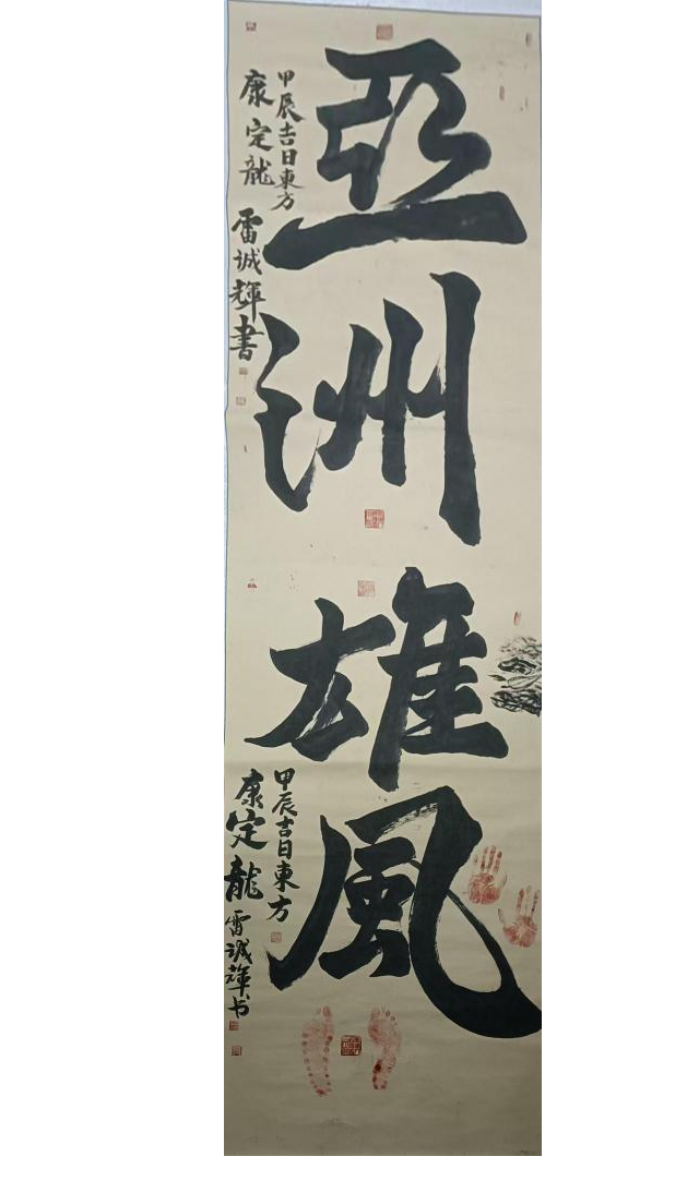 亞洲雄風
甲辰吉日東方
康定龍
雷诚輝書
甲辰吉日東方
康定龍
雷诚輝书